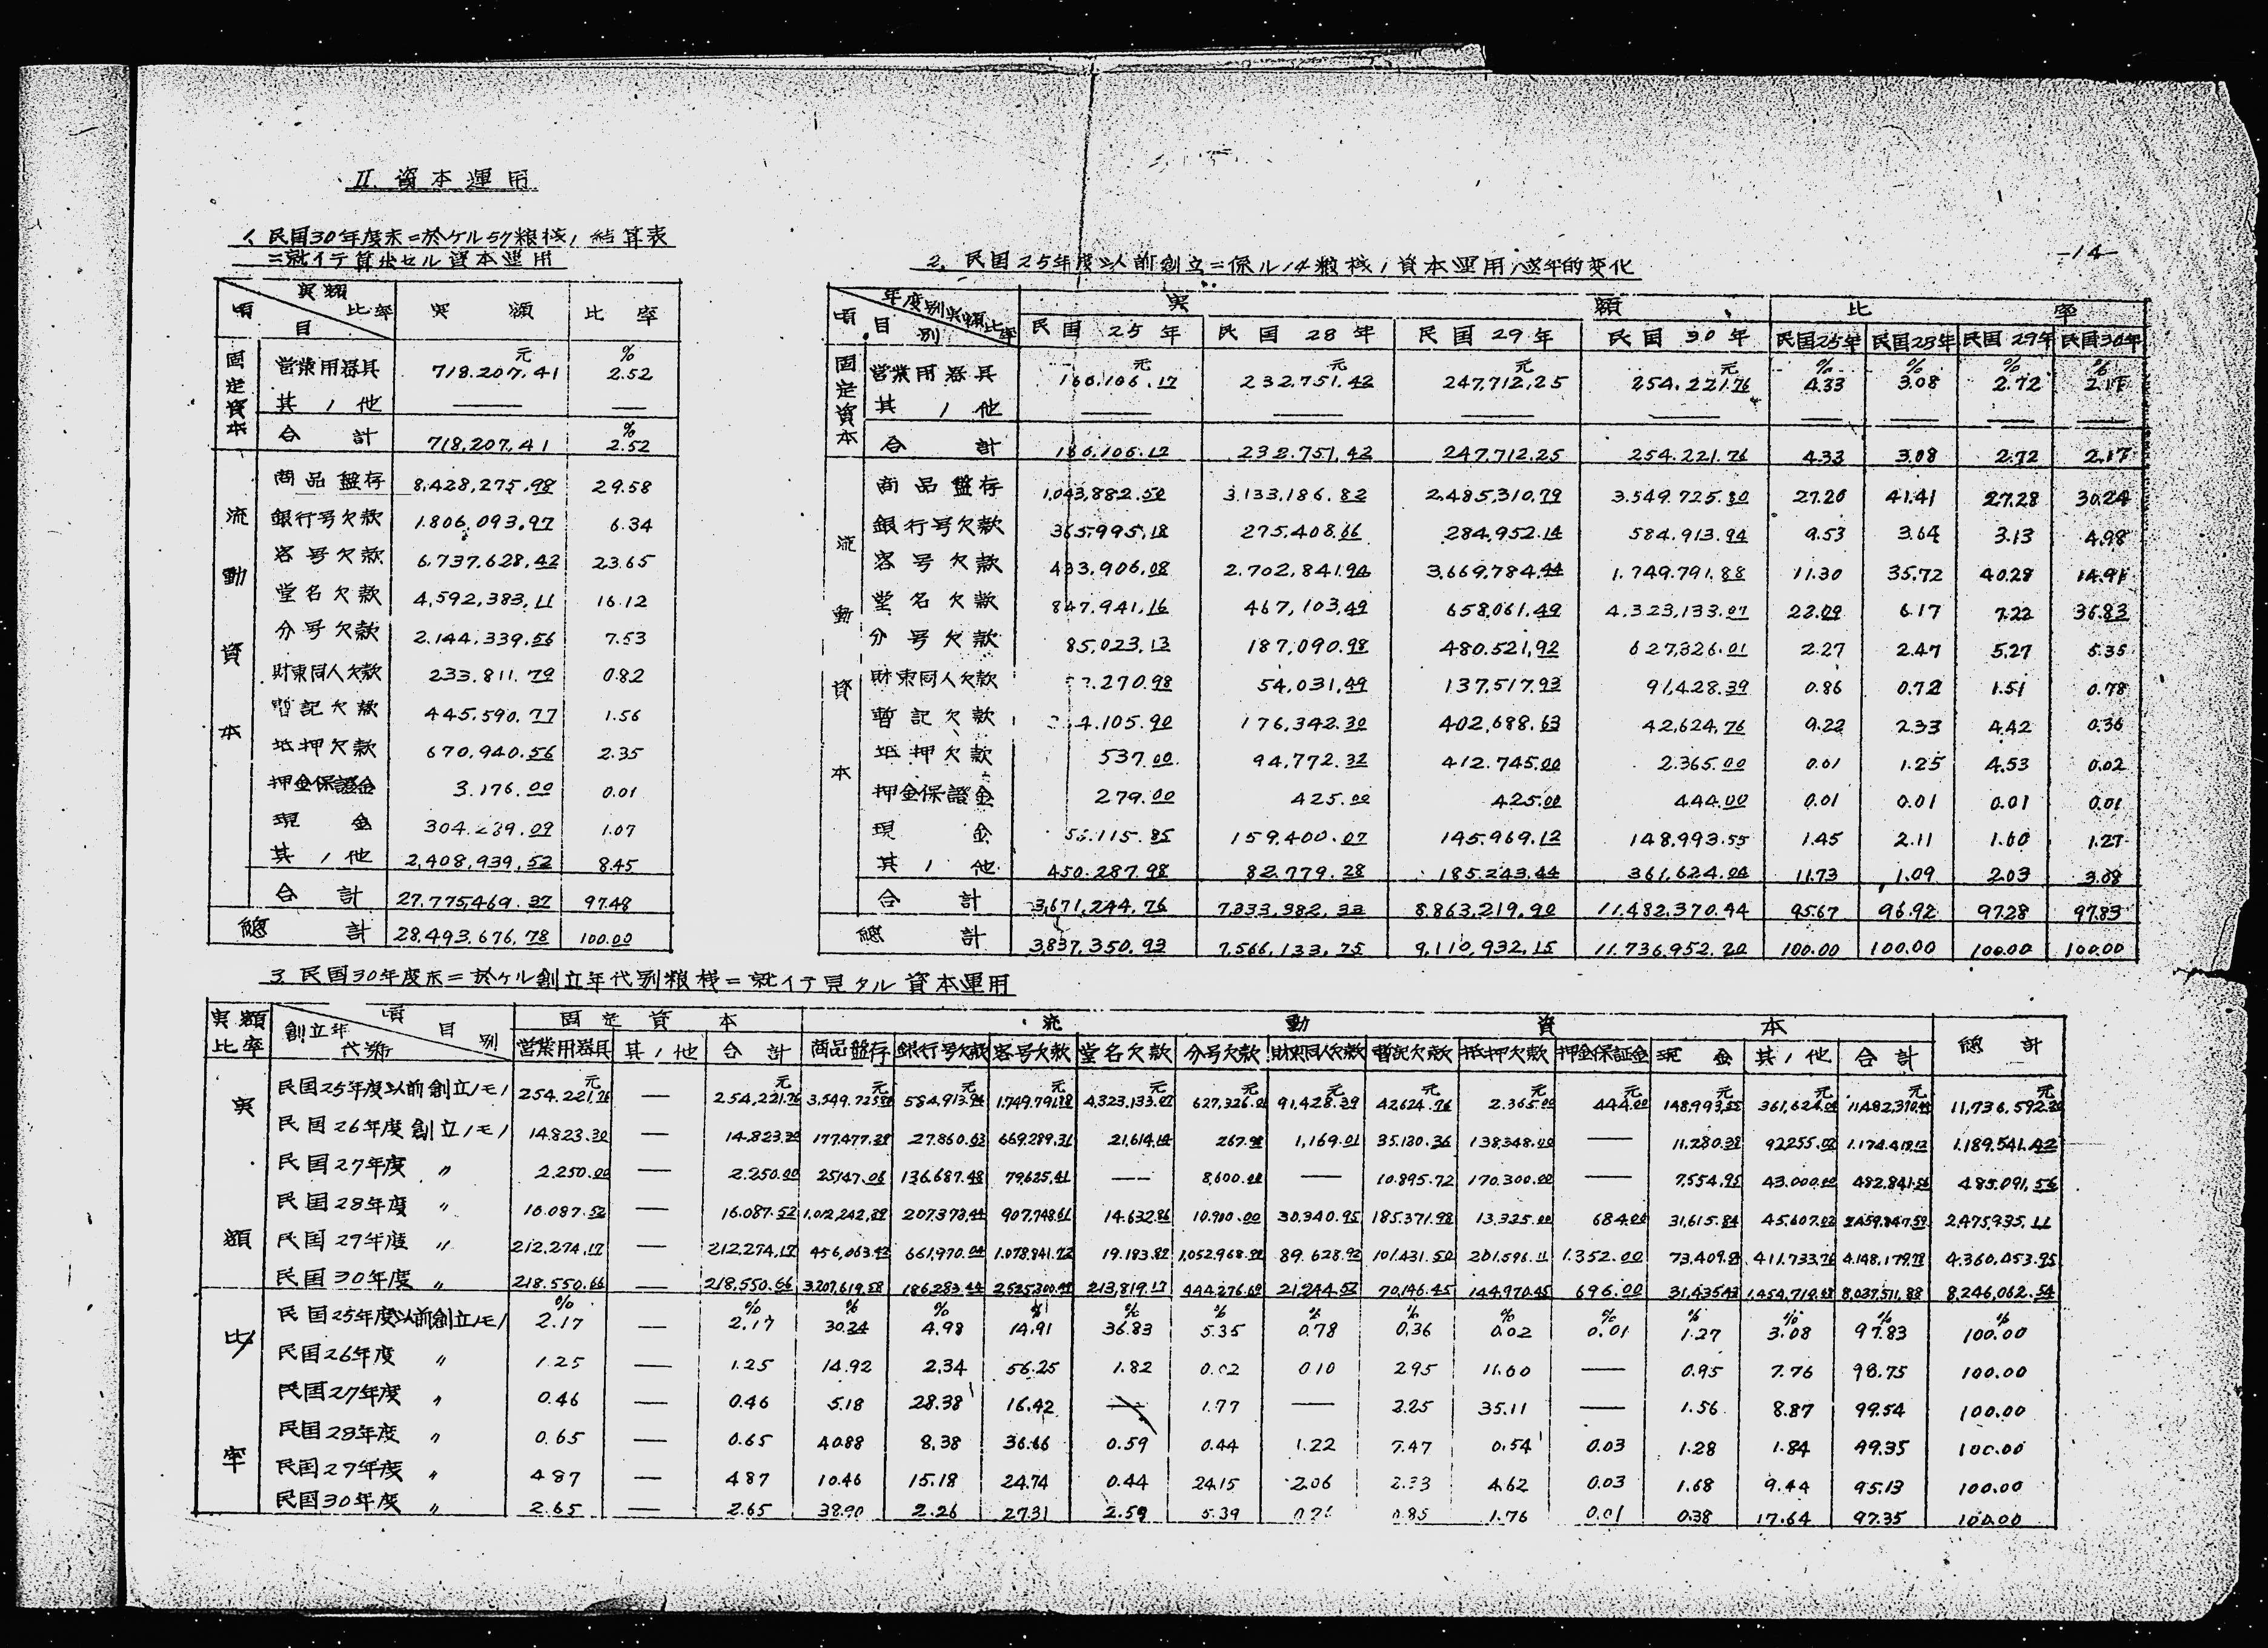 -14-
II. 資本運用
1. 民国30年度末ニ於ケル57粮桟ノ結算表
ニ就イテ算出セル資本運用
項目 実額比率 実額 比率
固定資本
営業用器具 718.207.41元 2.52%
其ノ他 — —
合計 718,207.41 2.52%
流動資本
商品盤存 8,428,275.98 29.58
銀行号欠款 1.806.093.97 6.34
客号欠款 6,737.628.42 23.65
堂名欠款 4,592,383.11 16.12
分号欠款 2.144.339.56 7.53
財東同人欠款 233.811.79 0.82
暫記欠款 445.590.77 1.56
抵押欠款 670,940.56 2.35
押金保證金 3.176.00 0.01
現金 304.289.09 1.07
其ノ他 2,408,939.52 8.45
合計 27,775,469.37 97.48
總計 28,493,676.78 100.00
2. 民国25年度以前創立ニ係ル14粮桟ノ資本運用ノ逐年的変化
項目 年度別実額比率別 実額 比率
民国25年 民国28年 民国29年 民国30年 民国25年 民国28年 民国29年 民国30年
固定資本
営業用器具 166.106.17元 232.751.42元 247,712.25元 254.221.76元 4.33% 3.08% 2.72% 2.17%
其ノ他 — — — — — — — —
合計 166.106.17 232.751.42 247.712.25 254.221.76 4.33 3.08 2.72 2.17
流動資本
商品盤存 1,043,882.50 3.133,186.82 2,485,310.79 3.549.725.80 27.20 41.41 27.28 30.24
銀行号欠款 365.995.18 275.408.66 284,952.14 584.913.94 9.53 3.64 3.13 4.98
客号欠款 433.906.08 2.702,841.94 3,669.784.44 1.749.791.88 11.30 35.72 40.28 14.91
堂名欠款 847.941.16 467,103.49 658,061.49 4.323,133.07 22.09 6.17 7.22 36.83
分号欠款 85,023.13 187,090.98 480.521.92 627,326.01 2.27 2.47 5.27 5.35
財東同人欠款 270.98 54,031.49 137,517.93 91,428.39 0.86 0.72 1.51 0.78
暫記欠款 4.105.90 176,342.30 402,688.63 42,624.76 9.22 2.33 4.42 0.36
抵押欠款 537.00 94,772.32 412.745.00 2.365.00 0.01 1.25 4.53 0.02
押金保證金 279.00 425.00 425.00 444.00 0.01 0.01 0.01 0.01
現金 115.85 159,400.07 145,969.12 148,993.55 1.45 2.11 1.60 1.27
其ノ他 450.287.98 82,779.28 185.243.44 361,624.04 11.73 1.09 2.03 3.08
合計 3,671,244.76 7,333,382.33 8.863,219.90 11.482,370.44 95.67 96.92 97.28 97.83
總計 3,837,350.93 7,566,133.75 9,110,932.15 11.736,952.20 100.00 100.00 100.00 100.00
3. 民国30年度末ニ於ケル創立年代別粮桟ニ就イテ見タル資本運用
実額比率 創立年代別 項目別 固定資本 流動資本 總計
営業用器具 其ノ他 合計 商品盤存 銀行号欠款 客号欠款 堂名欠款 分号欠款 財東同人欠款 暫記欠款 抵押欠款 押金保証金 現金 其ノ他 合計
実額
民国25年度以前創立ノモノ 254.221.76元 — 254,221.76元 3.549.725.80元 584,913.94元 1.749.791.88元 4,323.133.07元 627,326.01元 91,428.39元 42624.76元 2.365.00元 444.00元 148,993.55元 361,624.04元 11,482,370.44元 11,736.592.20元
民国26年度創立ノモノ 14.823.30 — 14.823.30 177,477.39 27.860.63 669.289.31 21,614.14 267.98 1,169.01 35.130.36 138348.00 — 11.280.38 92255.02 1.174.418.12 1.189,541.42
民国27年度〃 2.250.00 — 2.250.00 25,147.06 136.687.48 79,625.41 — 8,600.00 — 10.895.72 170.300.00 — 7,554.95 43.000.00 482,841.56 485.091.56
民国28年度〃 16.087.52 — 16.087.52 1.012,242.89 207,373.44 907,748.61 14.632.86 10.900.00 30.340.95 185.371.98 13.325.00 684.00 31,615.84 45,607.02 2,459,847.59 2,475,935.11
民国29年度〃 212.274.17 — 212.274.17 456,063.42 661,970.04 1.078,841.72 19.183.82 1,052,968.22 89.628.92 101,431.50 201,596.11 1.352.00 73,409.9 411,733.76 4.148,179.78 4.360,453.95
民国30年度〃 218.550.66 — 218.550.66 3,207,619.58 186,283.44 2,525,300.49 213,819.17 444,276.69 21,244.52 70,146.45 144,970.45 696.00 31,435.43 1,454,719.68 8,027,511.88 8,246,062.54
比率
民国25年度以前創立ノモノ 2.17% — 2.17% 30.24% 4.98% 14.91% 36.83% 5.35% 0.78% 0.36% 0.02% 0.01% 1.27% 3.08% 97.83% 100.00%
民国26年度〃 1.25 — 1.25 14.92 2.34 56.25 1.82 0.02 0.10 2.95 11.60 — 0.95 7.76 98.75 100.00
民国27年度〃 0.46 — 0.46 5.18 28.38 16.42 — 1.77 — 2.25 35.11 — 1.56 8.87 99.54 100.00
民国28年度〃 0.65 — 0.65 40.88 8.38 36.66 0.59 0.44 1.22 7.47 0.54 0.03 1.28 1.84 99.35 100.00
民国29年度〃 4.87 — 4.87 10.46 15.18 24.74 0.44 24.15 2.06 2.33 4.62 0.03 1.68 9.44 95.13 100.00
民国30年度〃 2.65 — 2.65 38.90 2.26 27.31 2.59 5.39 0.26 0.85 1.76 0.01 0.38 17.64 97.35 100.00